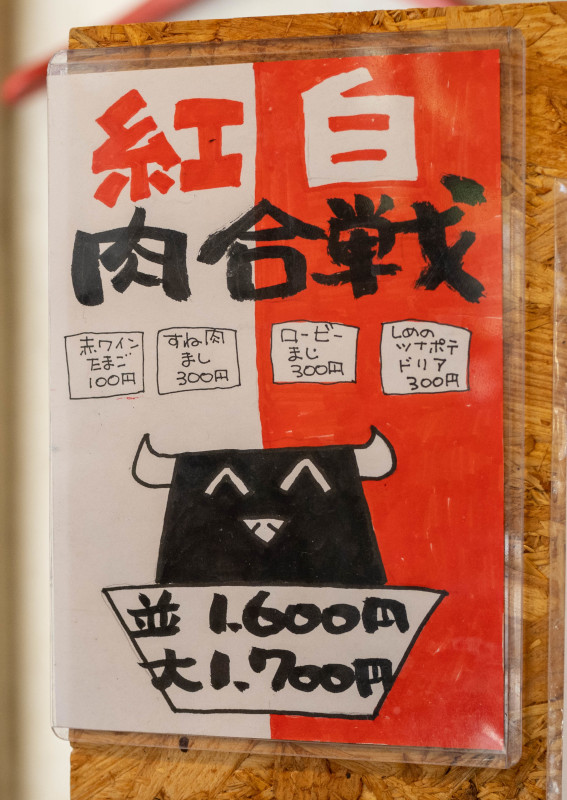 紅白
肉合戦
赤ワイン
たまご
100円
すね肉
まし
300円
ロービー
まし
300円
しめの
ツナポテ
ドリア
300円
並 1.600円
大 1.700円